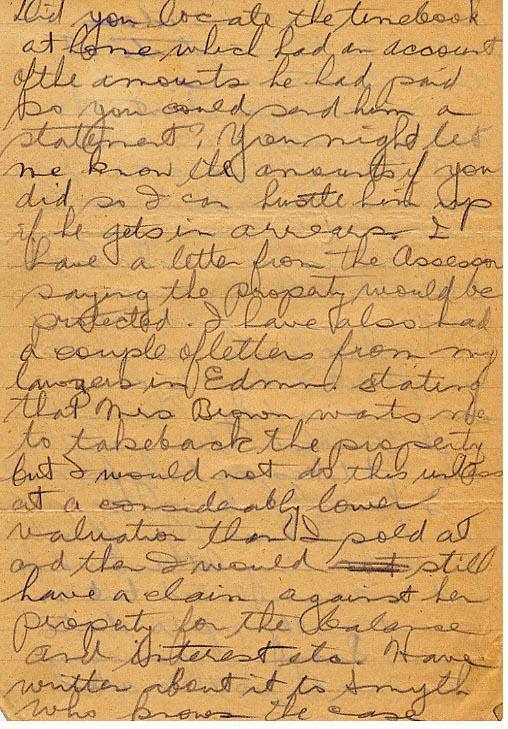 Did you locate the timebook
at home which had an account
of the amounts he had paid
so you could send him a
statement? You might let
me know the amounts if you
did so I can hustle him up
if he gets in arrears. I
have a letter from the Assessor
saying the property would be
protected. I have also had
a couple of letters from my
lawyers in Edmn. stating
that Mrs Brown wants me
to take back the property
but I would not do this unless
at a considerably lower
valuation than I sold at
and then I would still
have a claim against her
property for the balance
and interest etc. Have
written about it to Smyth
who knows the case